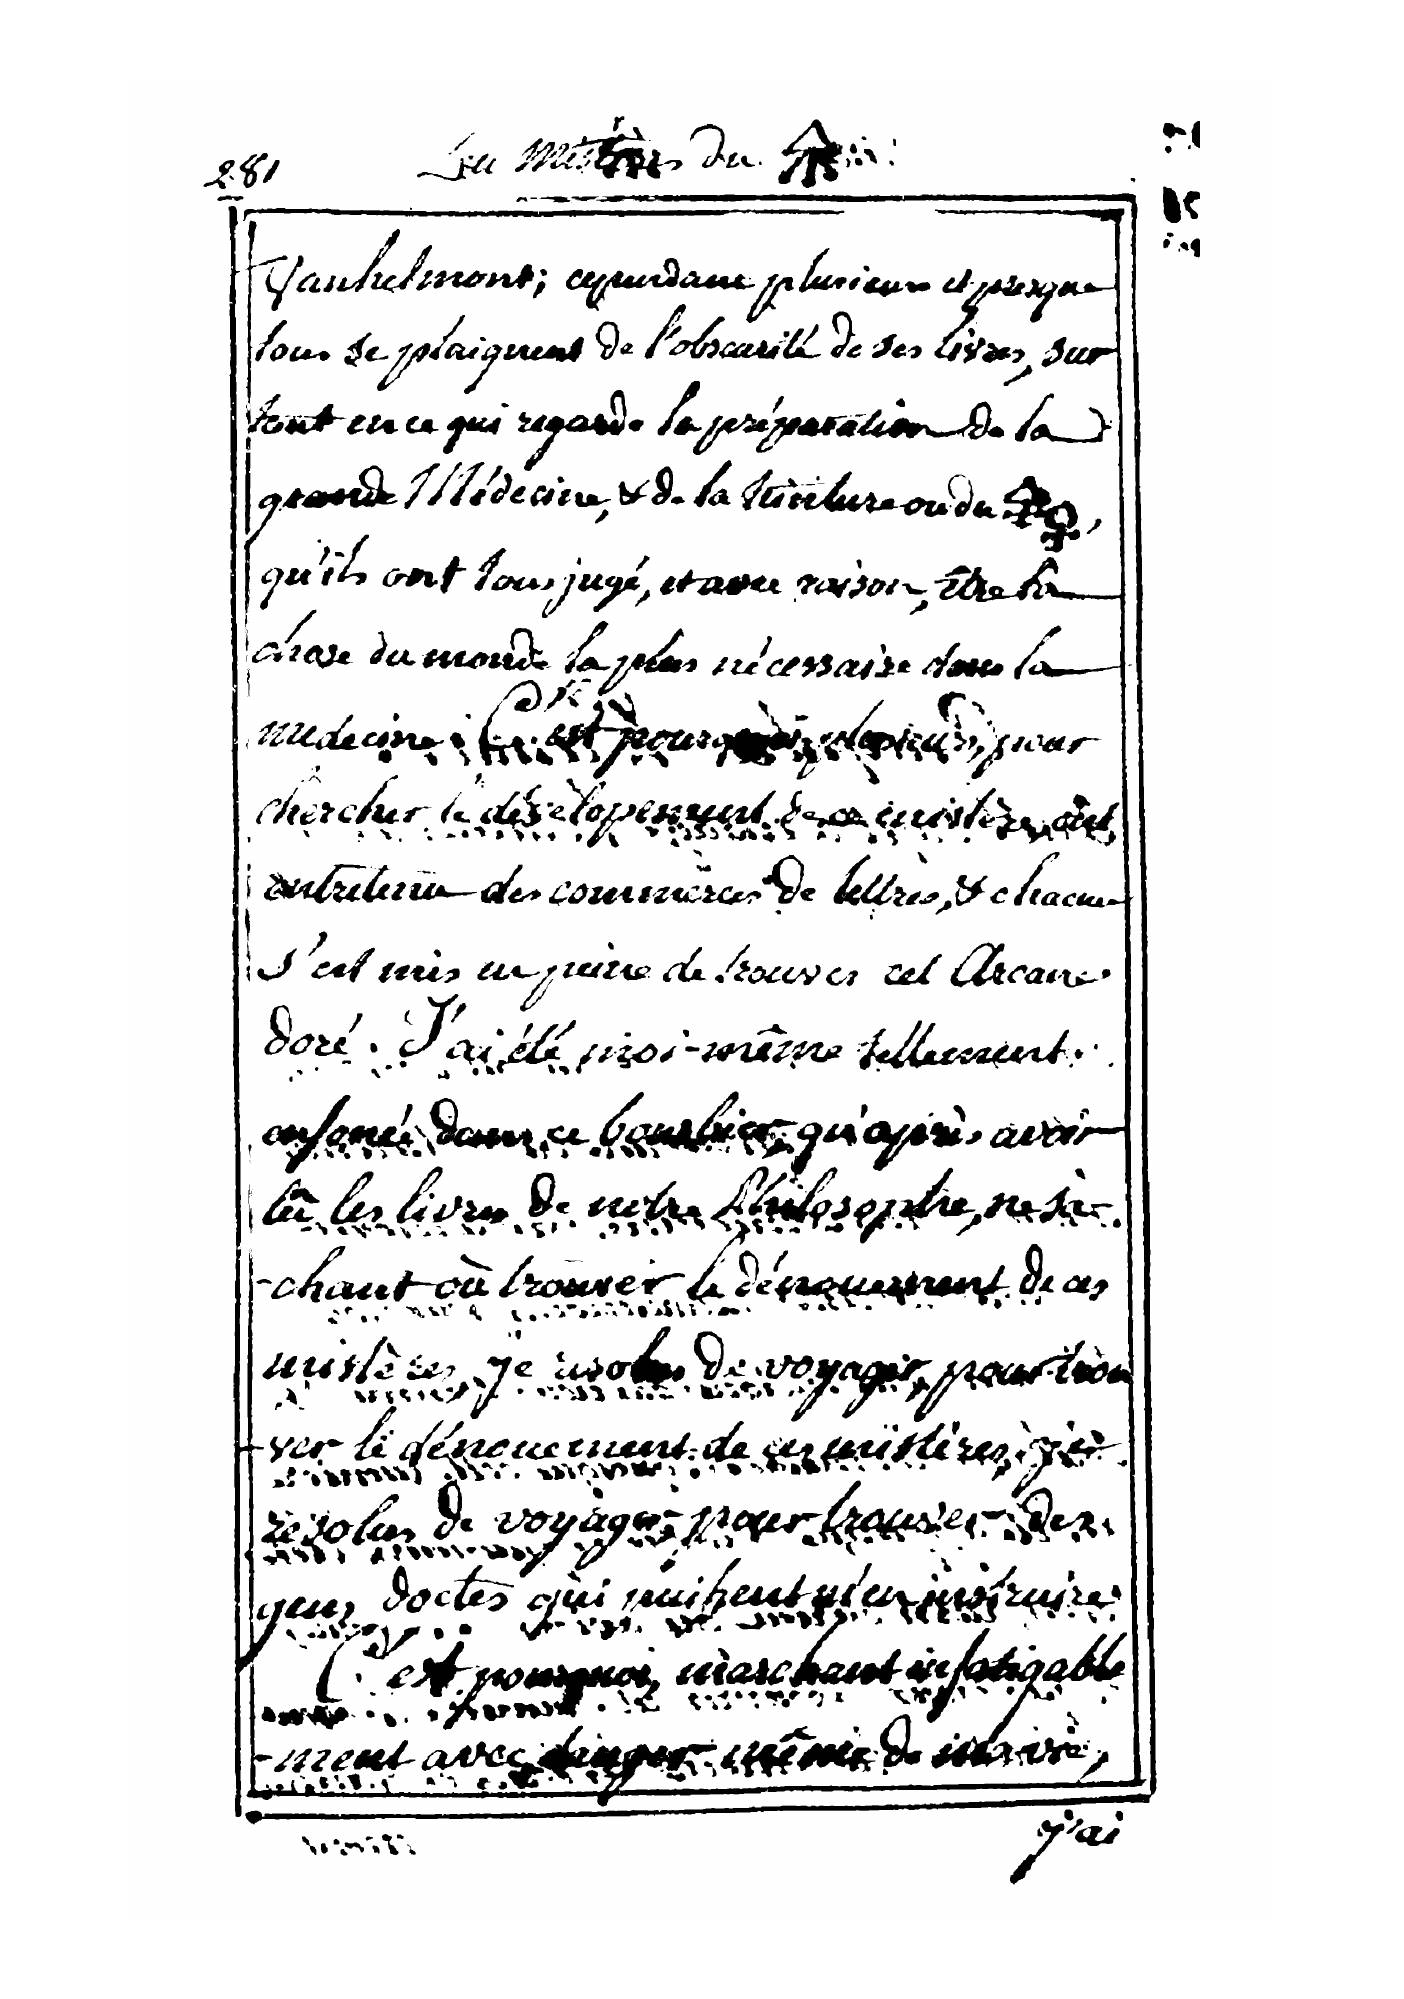 281 Les Mistères du
Vanhelmont; cependant plusieurs et presque
tous se plaignent de l'obscurité de ses livres, sur
tout en ce qui regarde la préparation de la
grande Médecine, & de la teinture ou du
qu'ils ont tous jugé, et avec raison, être la
chose du monde la plus nécessaire dans la
medecine; C'est pourquoi plusieurs, pour
chercher le dévelopement de ce mistère, ont
entretenu des commerces de lettres, & chacun
s'est mis en peine de trouver cet Arcane
doré. J'ai été moi-même tellement
enfoncé dans ce bourbier, qu'après avoir
lû les livres de notre Philosophe, ne sa-
-chant où trouver le dénouement de ces
mistères, je résolus de voyager, pour trou
-ver le dénouement de ces mistères, je
résolus de voyager pour trouver des
gens doctes qui puissent m'en instruire
C'est pourquoi, marchant infatigable
-ment avec danger même de ma vie,
j'ai